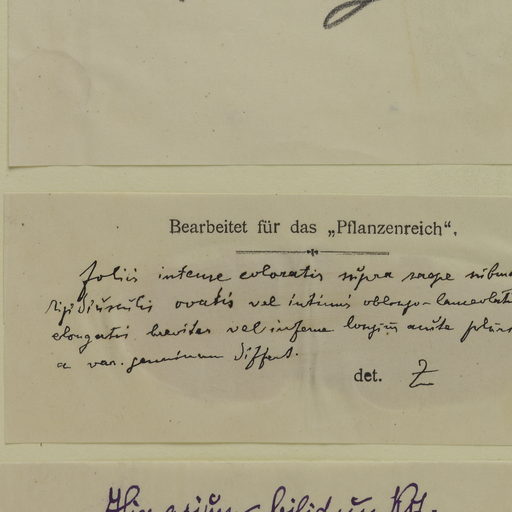 Bearbeitet für das „Pflanzenreich“.
foliis intense coloratis supra saepe
rigidiusculis ovatis vel intimis oblongo-lanceolat
elongatis breviter vel inferne longius acute
a var. genuinum differt.
det. Z